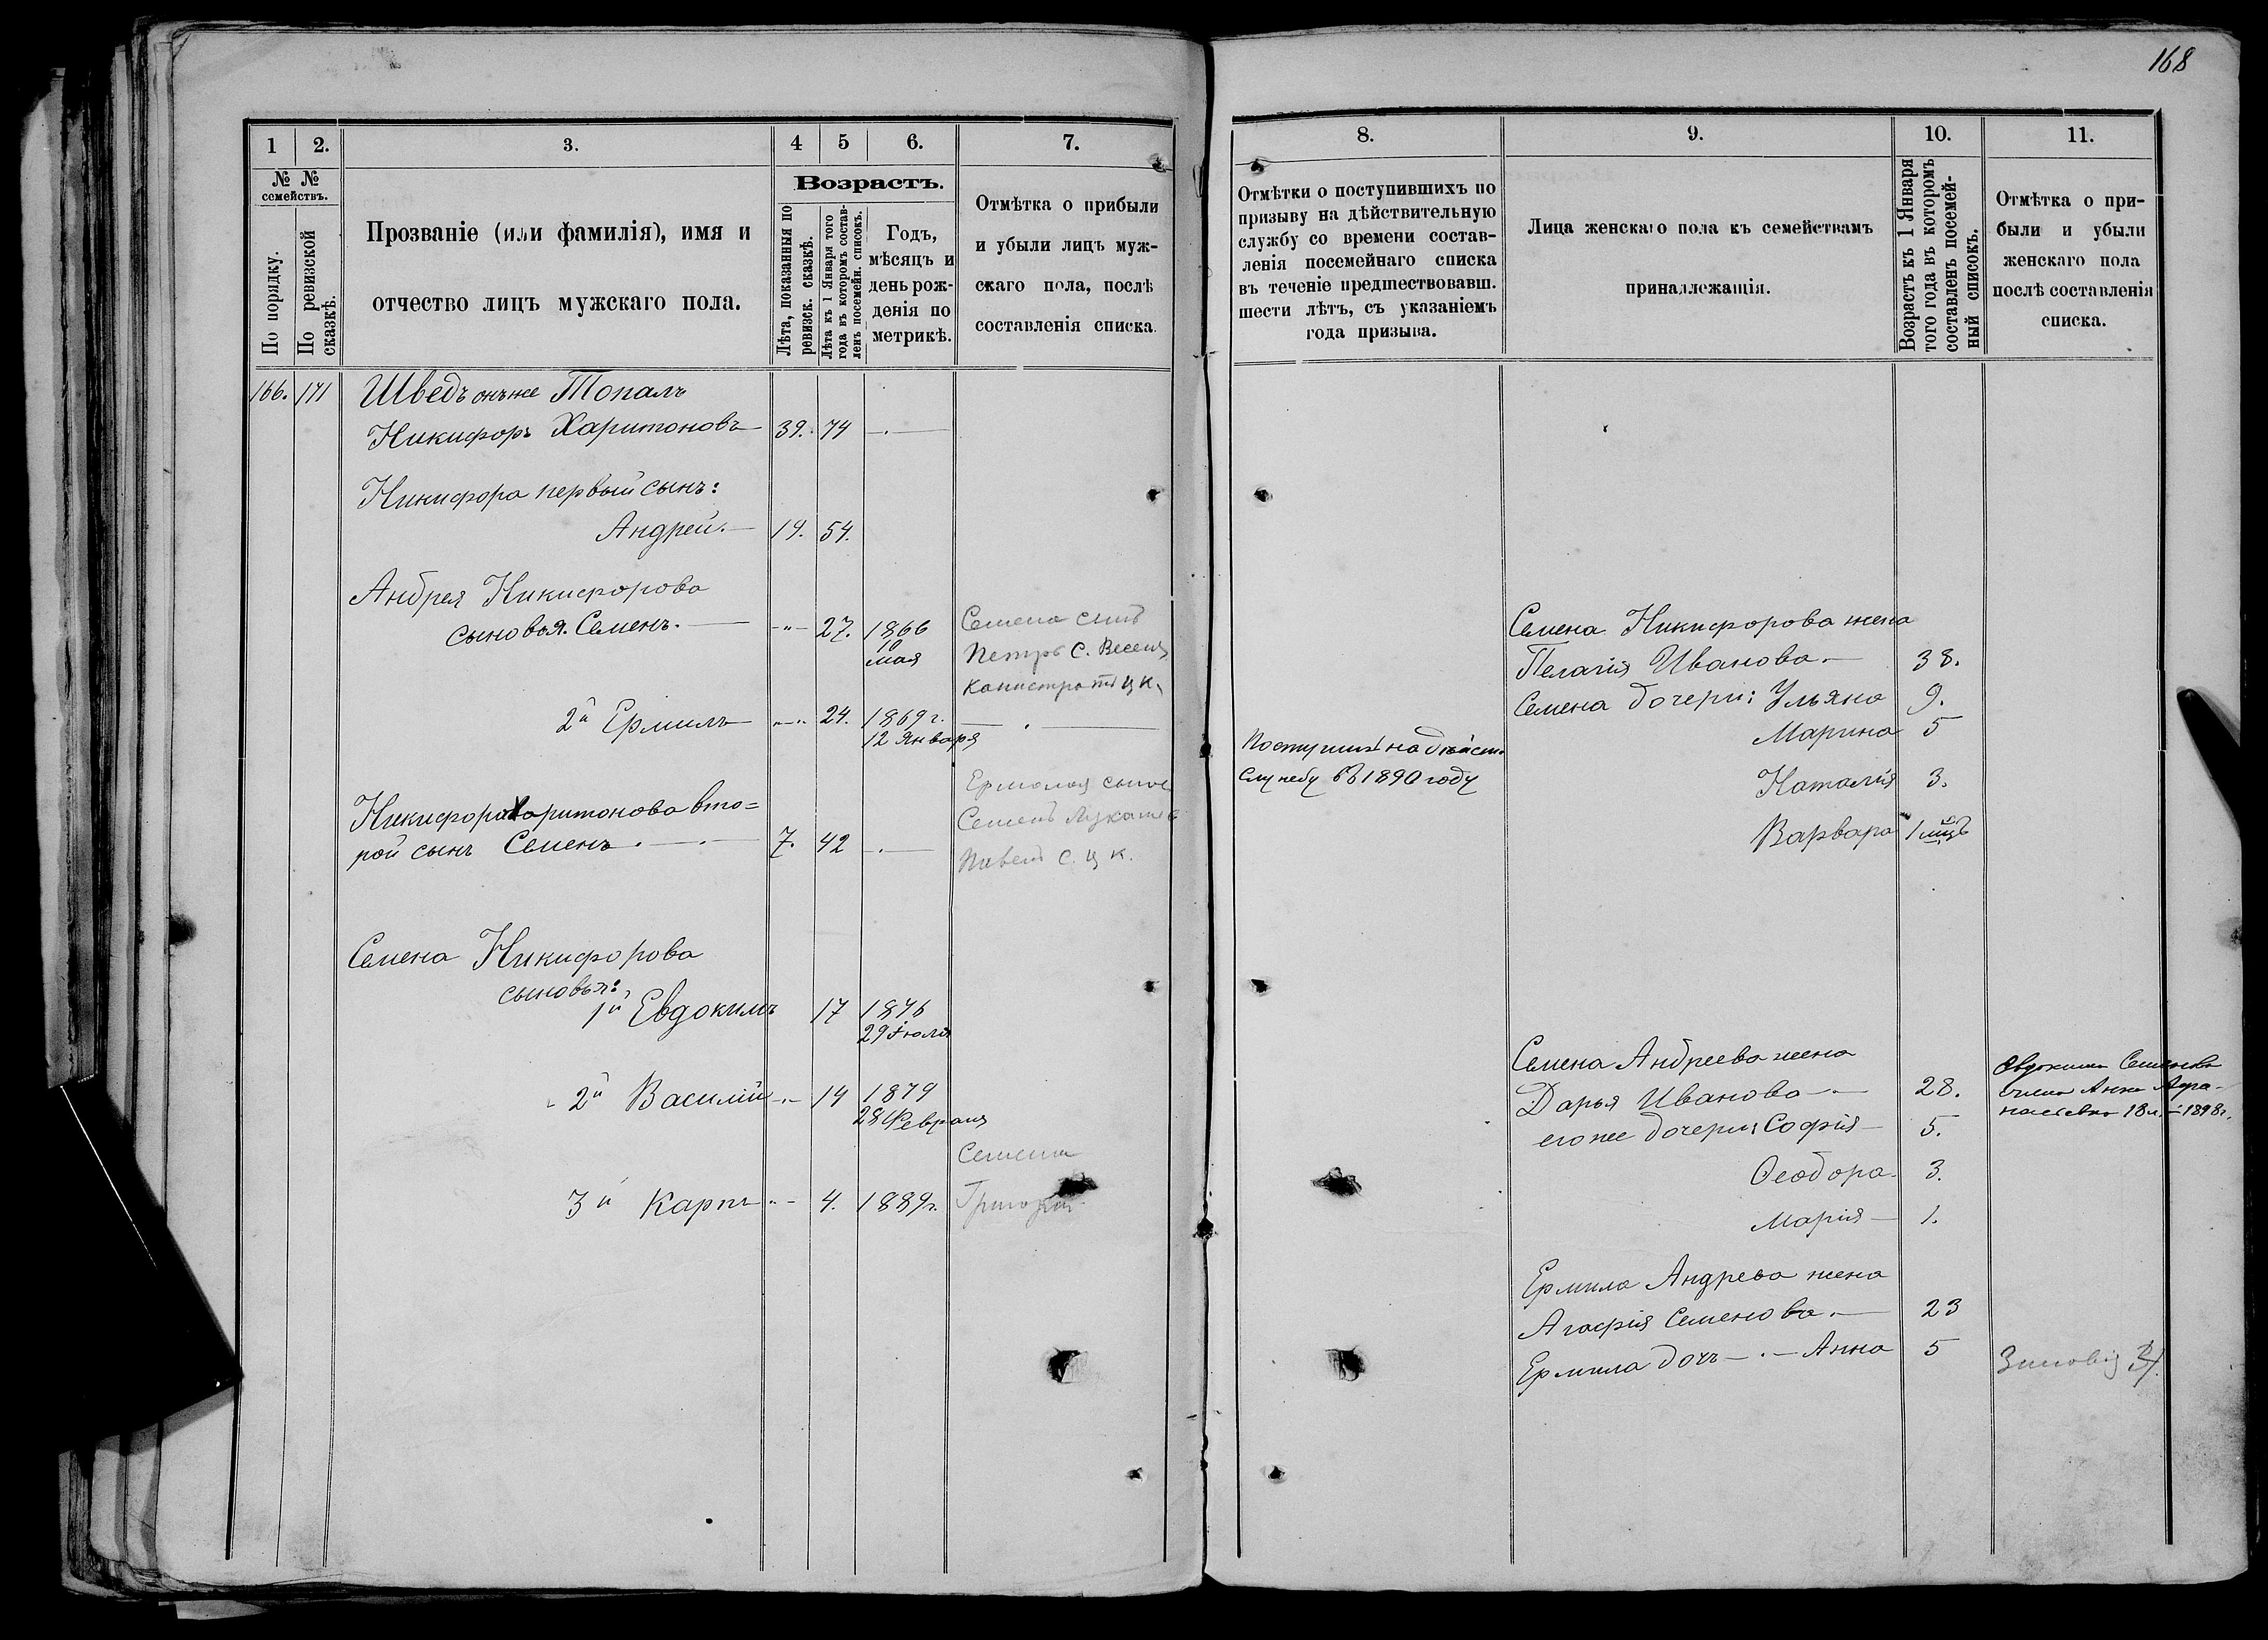 168
1 2. 3. 4 5 6. 7.
№ № семействъ.
По порядку.
По ревизской сказкѣ.
Прозваніе (или фамилія), имя и
отчество лицъ мужскаго пола.
Возрастъ.
Лѣта, показанныя по
ревизск. сказкѣ.
Лѣта къ 1 Января того
года въ которомъ состав-
ленъ посемейн. списокъ.
Годъ,
мѣсяцъ и
день рож-
денія по
метрикѣ.
Отмѣтка о прибыли
и убыли лицъ муж-
скаго пола, послѣ
составленія списка.
166. 171 Шведъ онъже Топалъ
Никифоръ Харитоновъ 39. 74
Никифора первый сынъ:
Андрей. 19. 54.
Андрея Никифорова
сыновья. Семенъ. 27. 1866
10
мая
Семена
Петръ С.
2й Ермилъ 24. 1869 г.
12 Января
Никифора Харитонова вто=
рой сынъ Семенъ 7. 42
Семенъ
С. ц к.
Семена Никифорова
сыновья:
1й Евдокимъ 17 1876
29 Іюля
2й Василій 14 1879
28 Февраля
Семена
3й Карпъ 4. 1889 г.
Григорій
8. 9. 10. 11.
Отмѣтки о поступившихъ по
призыву на дѣйствительную
службу со времени состав-
ленія посемейнаго списка
въ теченіе предшествовавш.
шести лѣтъ, съ указаніемъ
года призыва.
Лица женскаго пола къ семействамъ
принадлежащія.
Возрастъ къ 1 Января
того года въ которомъ
составленъ посемей-
ный списокъ.
Отмѣтка о при-
были и убыли
женскаго пола
послѣ составленія
списка.
Семена Никифорова жена
Пелагія Иванова 38.
Семена дочери: Ульяна 9.
Марина 5
Поступилъ на дѣйст.
службу въ 1890 году
Наталія 3.
Варвара 1 мцъ
Семена Андреева жена
Дарья Иванова 28.
его же дочери: Софія 5.
Ѳеодора 3.
Марія 1.
Евдокима Семенова
жена Анна Афа-
насьевна 18 л. 1898 г.
Ермила Андреева жена
Агафія Семенова 23
Ермила дочь Анна 5
Зиновія